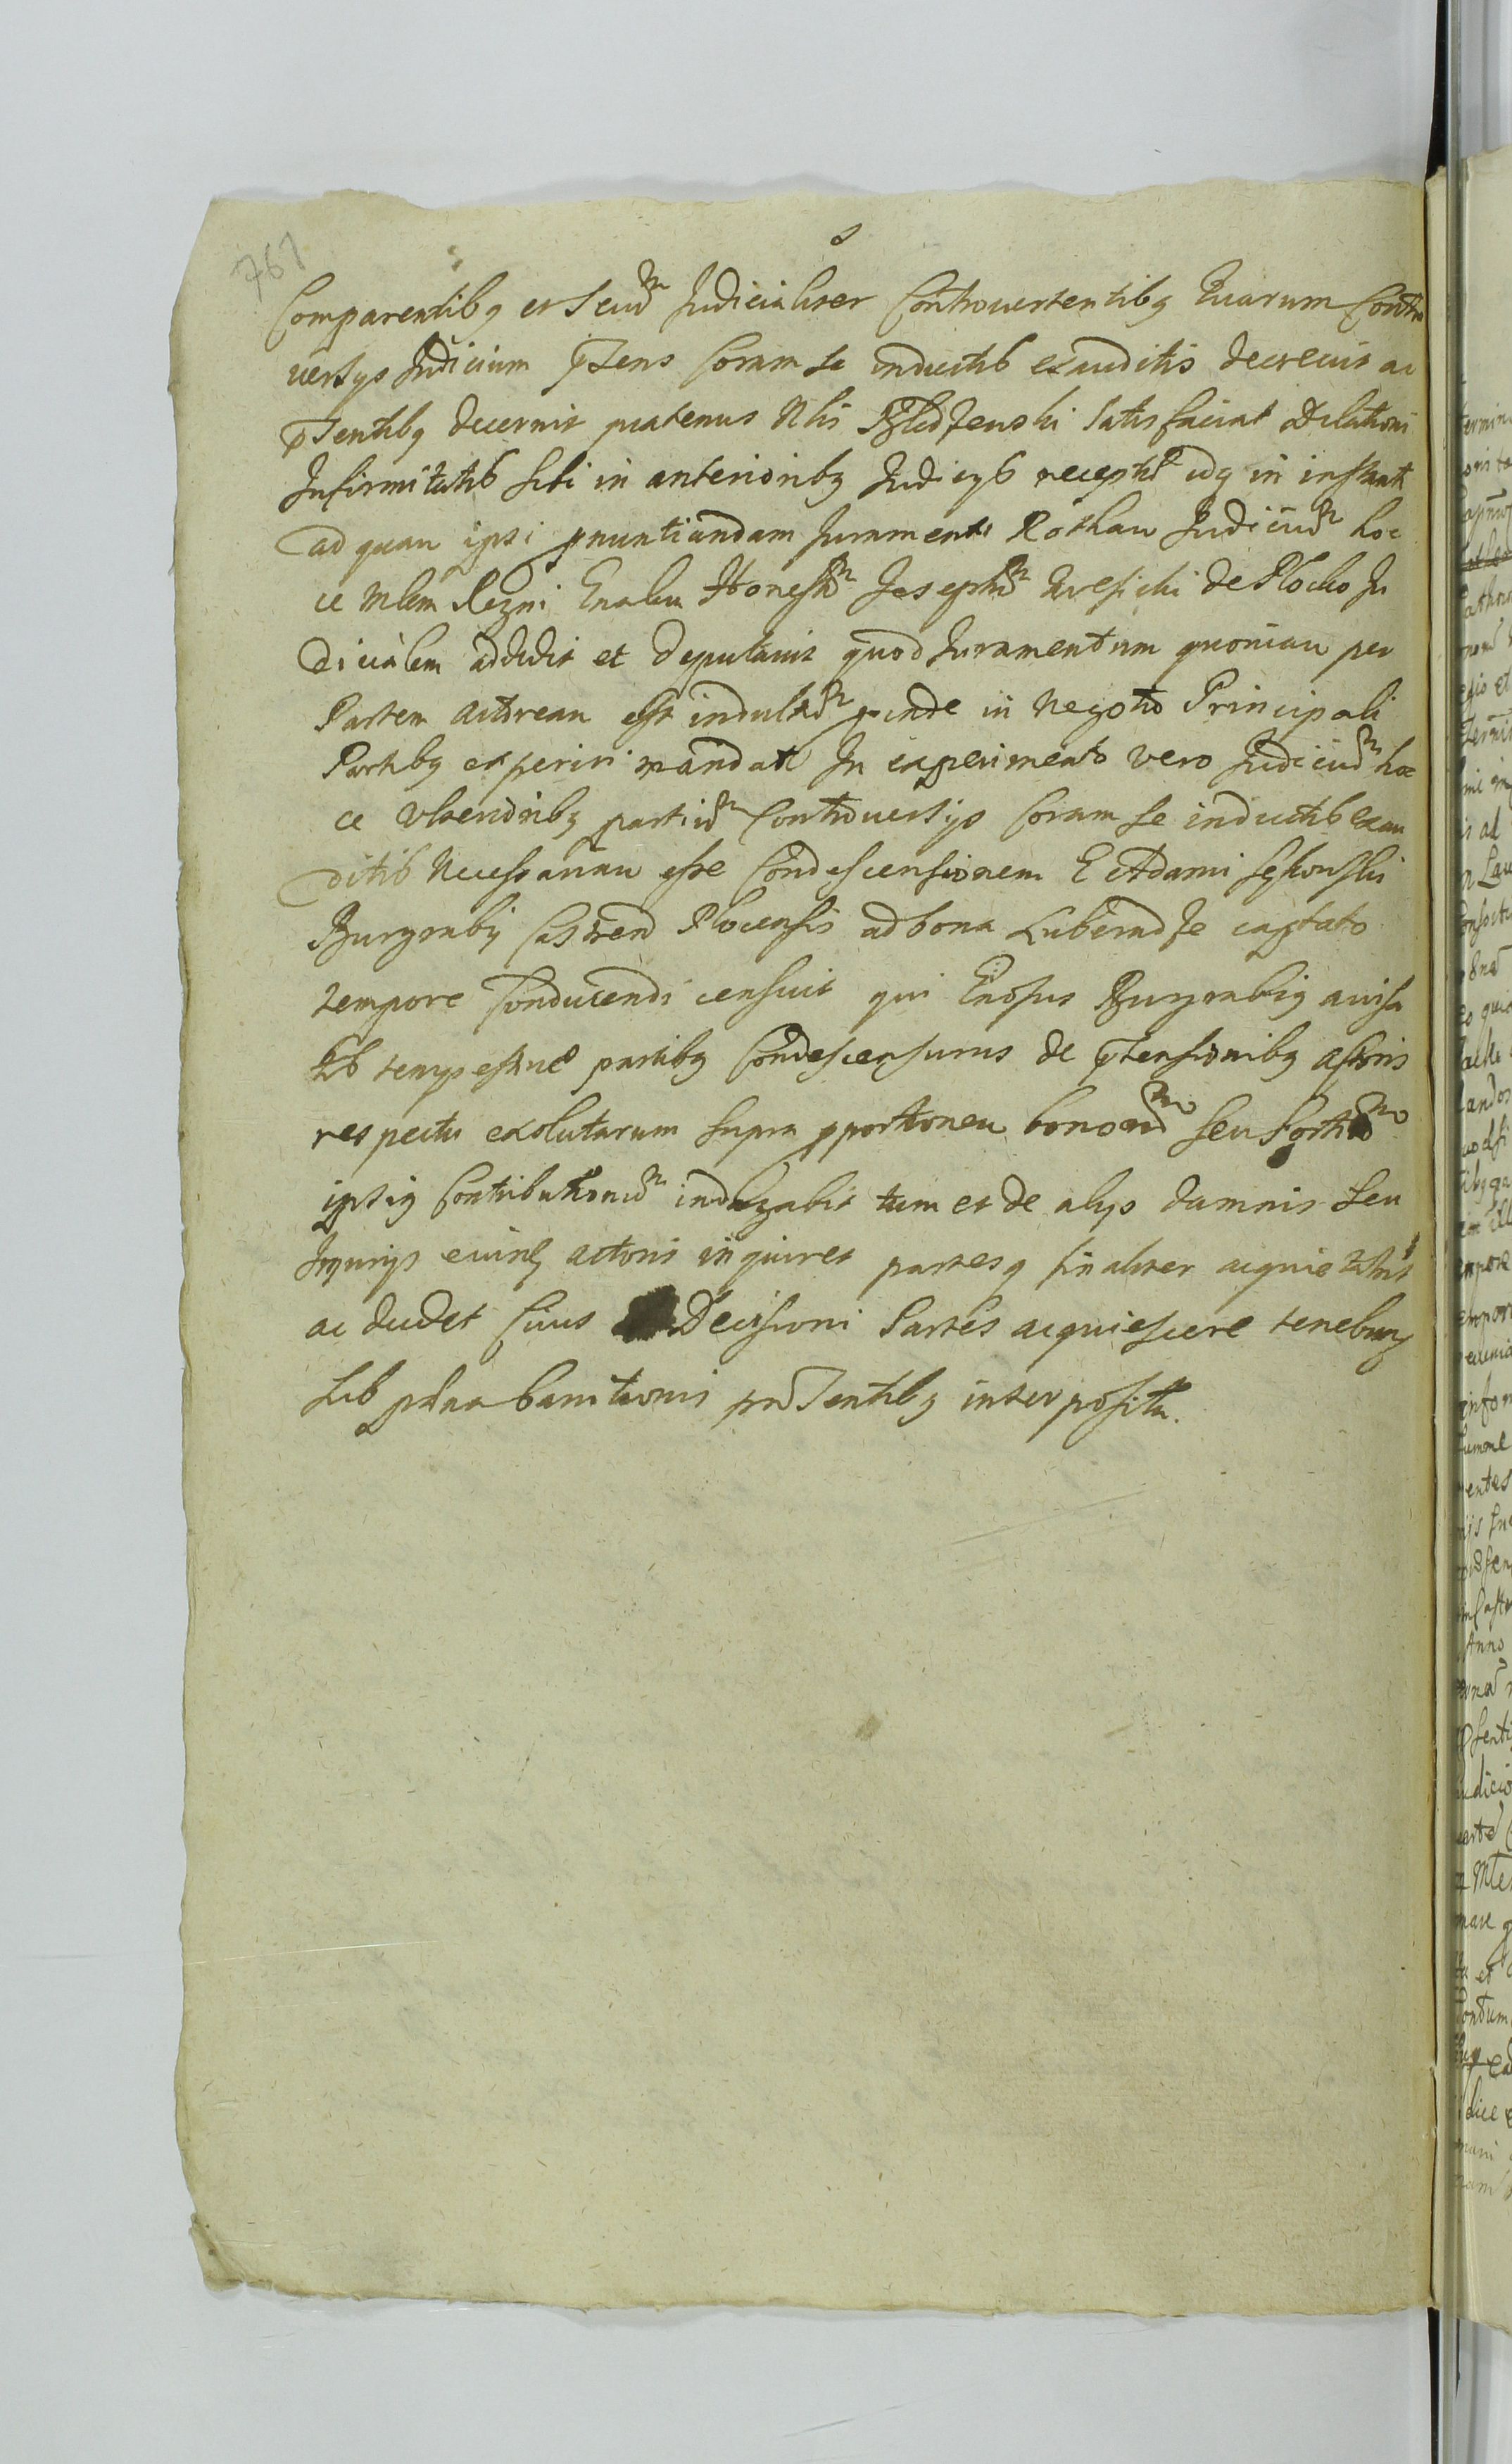 761
Comparentibq et Secum Judicialiter Controvertentibq Quarum Contro
versys Judicium pntens Coram se inductis exauditis decrevit ac
pntentibq decernit quatenus Nlis Bledzenski satisfaciat Dilationi
Infirmitatis sibi in anterioribq Judicys recepta idq in instanti
ad quam ipsi pnuntiandam Juramenti Rotham Judicium hoc
ce Mlem Regni Gnalem Honestum Josephum de Plocko Ju
dicialem addidit et deputavit quod Juramentum quoniam per
Partem actoream est indultum proinde in Negotio Principali
Partibq experiri mandat In experimento vero Judicium hoc
ce Ulterioribq partium Controversys Coram se inductis exau
ditis Necessariam esse Condescensionem G Adami
Burgraby Castren Plocensis ad bona Luberadze captato
tempore Conducendi censuit qui Gnosus Burgrabiq avisa
tis tempestive partibq Condescensurus de ptensionibq actoris
respectu exolutarum supra pportionem bonorum seu Sortium
ipsiq Contributionum indagabit tum et de alys damnis seu
Injurys eiusq actoris inquiret partesq finaliter acquietabit
ac decidet Cuius Decisioni Partes acquiescere tenebunq
sub paena banitionis pntentibq interposita.